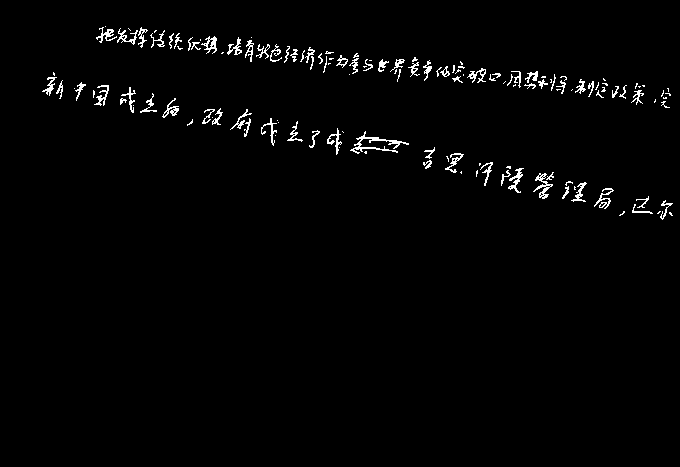 把发挥传统优势,培育特色经济作为参与世界竞争的突破口,因势利导,制定政策,完
新中国成立后,政府成立了成吉思汗陵管理局,达尔